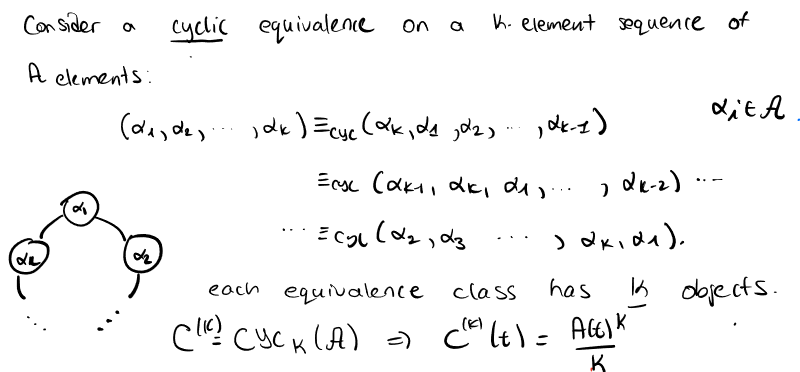 Consider a cyclic equivalence on a K-element sequence of
A elements:
(α₁, α₂, ..., αₖ) ≡cyc (αₖ, α₁, α₂, ..., αₖ₋₁) αᵢ ∈ A
≡cyc (αₖ₋₁, αₖ, α₁, ..., αₖ₋₂) ...
... ≡cyc (α₂, α₃ ... , αₖ, α₁).
α₁
αₖ α₂
... ...
each equivalence class has k objects.
C⁽ᵏ⁾ = CYCₖ(A) ⇒ C⁽ᵏ⁾(t) = A(t)ᵏ / K